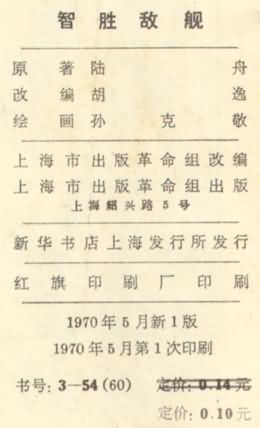 智胜敌舰
原著 陆舟
改编 胡逸
绘画 孙克敬
上海市出版革命组改编
上海市出版革命组出版
上海绍兴路5号
新华书店上海发行所发行
红旗印刷厂印刷
1970年5月新1版
1970年5月第1次印刷
书号：3—54(60) 定价：0.14元
定价：0.10元